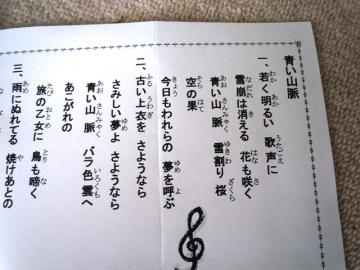 青い山脈
一、若く明るい 歌声に
雪崩は消える 花も咲く
青い山脈 雪割り桜
空の果
今日もわれらの 夢を呼ぶ
二、古い上衣を さようなら
さみしい夢よ さようなら
青い山脈 バラ色雲へ
あこがれの
旅の乙女に 鳥も啼く
三、雨にぬれてる 焼けあとの